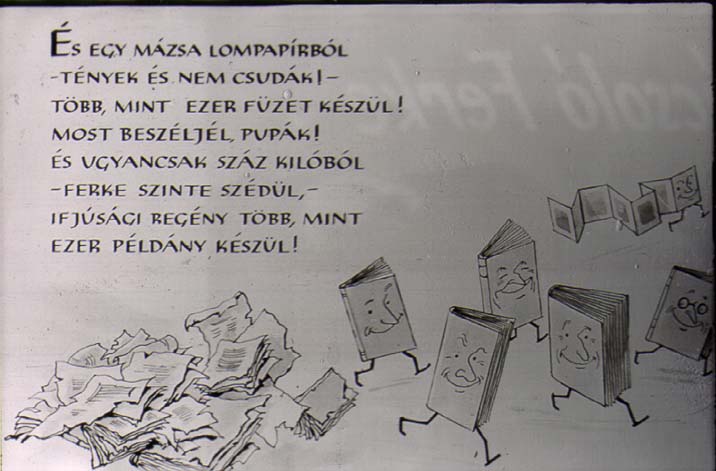 És egy mázsa lompapírból
-tények és nem csudák!-
több, mint ezer füzet készül!
Most beszéljél, Pupák!
És ugyancsak száz kilóból
-Ferke szinte szédül,-
ifjúsági regény több, mint
ezer példány készül!
csaló Ferke